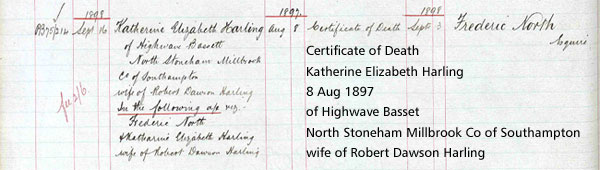 1898 1897 1898
Sept 16 Katherine Elizabeth Harling Aug 8 Certificate of Death Sept 3 Frederic North
of Highwave Bassett Esquire
North Stoneham Millbrook
Co of Southampton
wife of Robert Dawson Harling
In the following a/c viz:
Frederic North
& Katharine Elizabeth Harling
wife of Robert Dawson Harling
Certificate of Death
Katherine Elizabeth Harling
8 Aug 1897
of Highwave Basset
North Stoneham Millbrook Co of Southampton
wife of Robert Dawson Harling